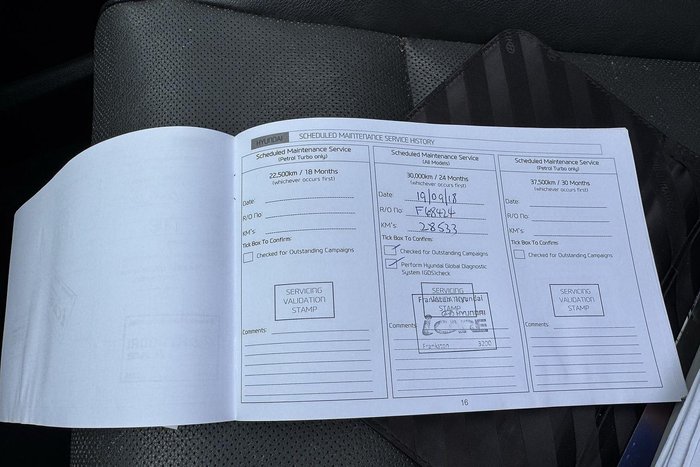 HYUNDAI SCHEDULED MAINTENANCE SERVICE HISTORY
Scheduled Maintenance Service
(Petrol Turbo only)
22,500km / 18 Months
(whichever occurs first)
Date:
R/O No:
KM's:
Tick Box To Confirm:
Checked for Outstanding Campaigns
SERVICING
VALIDATION
STAMP
Comments:
Scheduled Maintenance Service
(All Models)
30,000km / 24 Months
(whichever occurs first)
Date: 19/09/18
R/O No: F468424
KM's: 28533
Tick Box To Confirm:
Checked for Outstanding Campaigns
Perform Hyundai Global Diagnostic
System (GDS)check
SERVICING
STAMP
Frankston Hyundai
HYUNDAI
iCARE
Frankston 3200
Comments:
Scheduled Maintenance Service
(Petrol Turbo only)
37,500km / 30 Months
(whichever occurs first)
Date:
R/O No:
KM's:
Tick Box To Confirm:
Checked for Outstanding Campaigns
SERVICING
VALIDATION
STAMP
Comments:
16